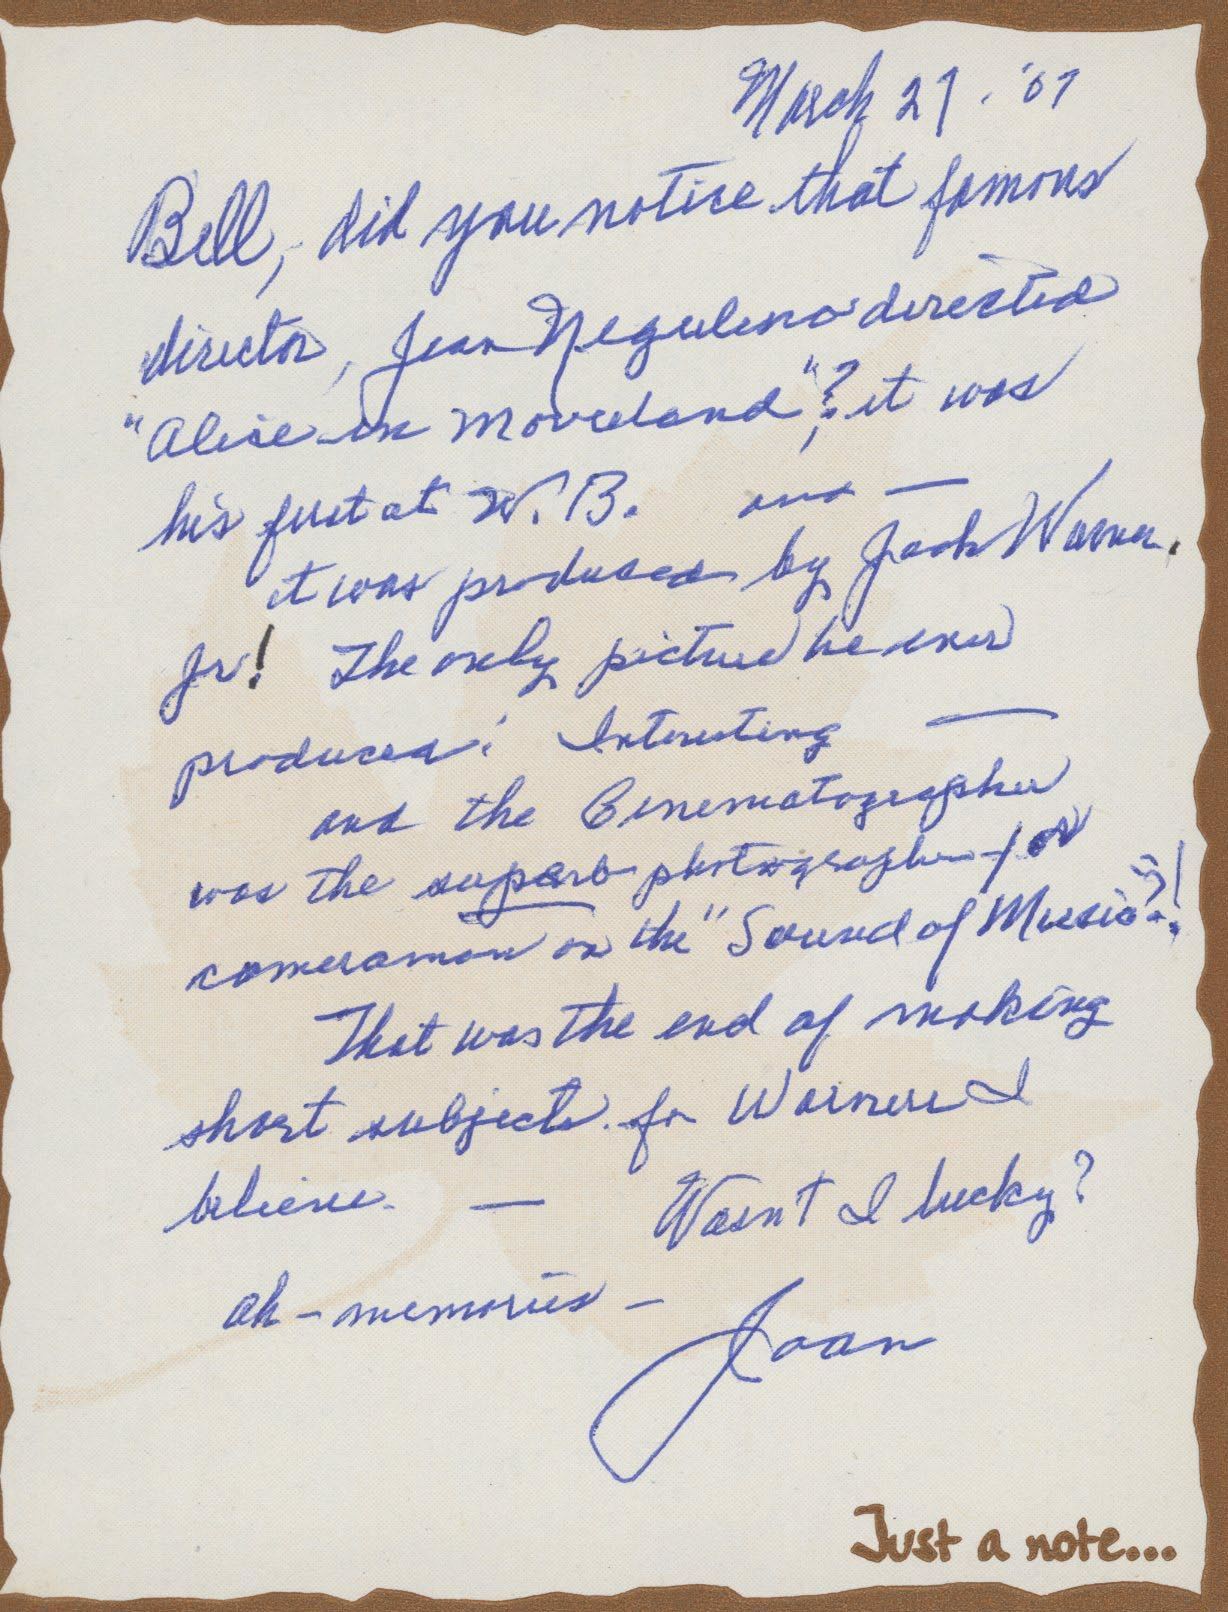 March 27. '07
Bill, - did you notice that famous
director, Jean Negulesco directed
"Alice in Movieland"?; it was
his first at W.B. and —
it was produced by Jack Warner.
Jr! The only picture he ever
produced! Interesting —
and the Cinematographer
was the superb photographer / or
cameraman on the "Sound of Music"!
That was the end of making
short subjects for Warners I
believe. — Wasn't I lucky?
ah - memories -
Joan
Just a note...